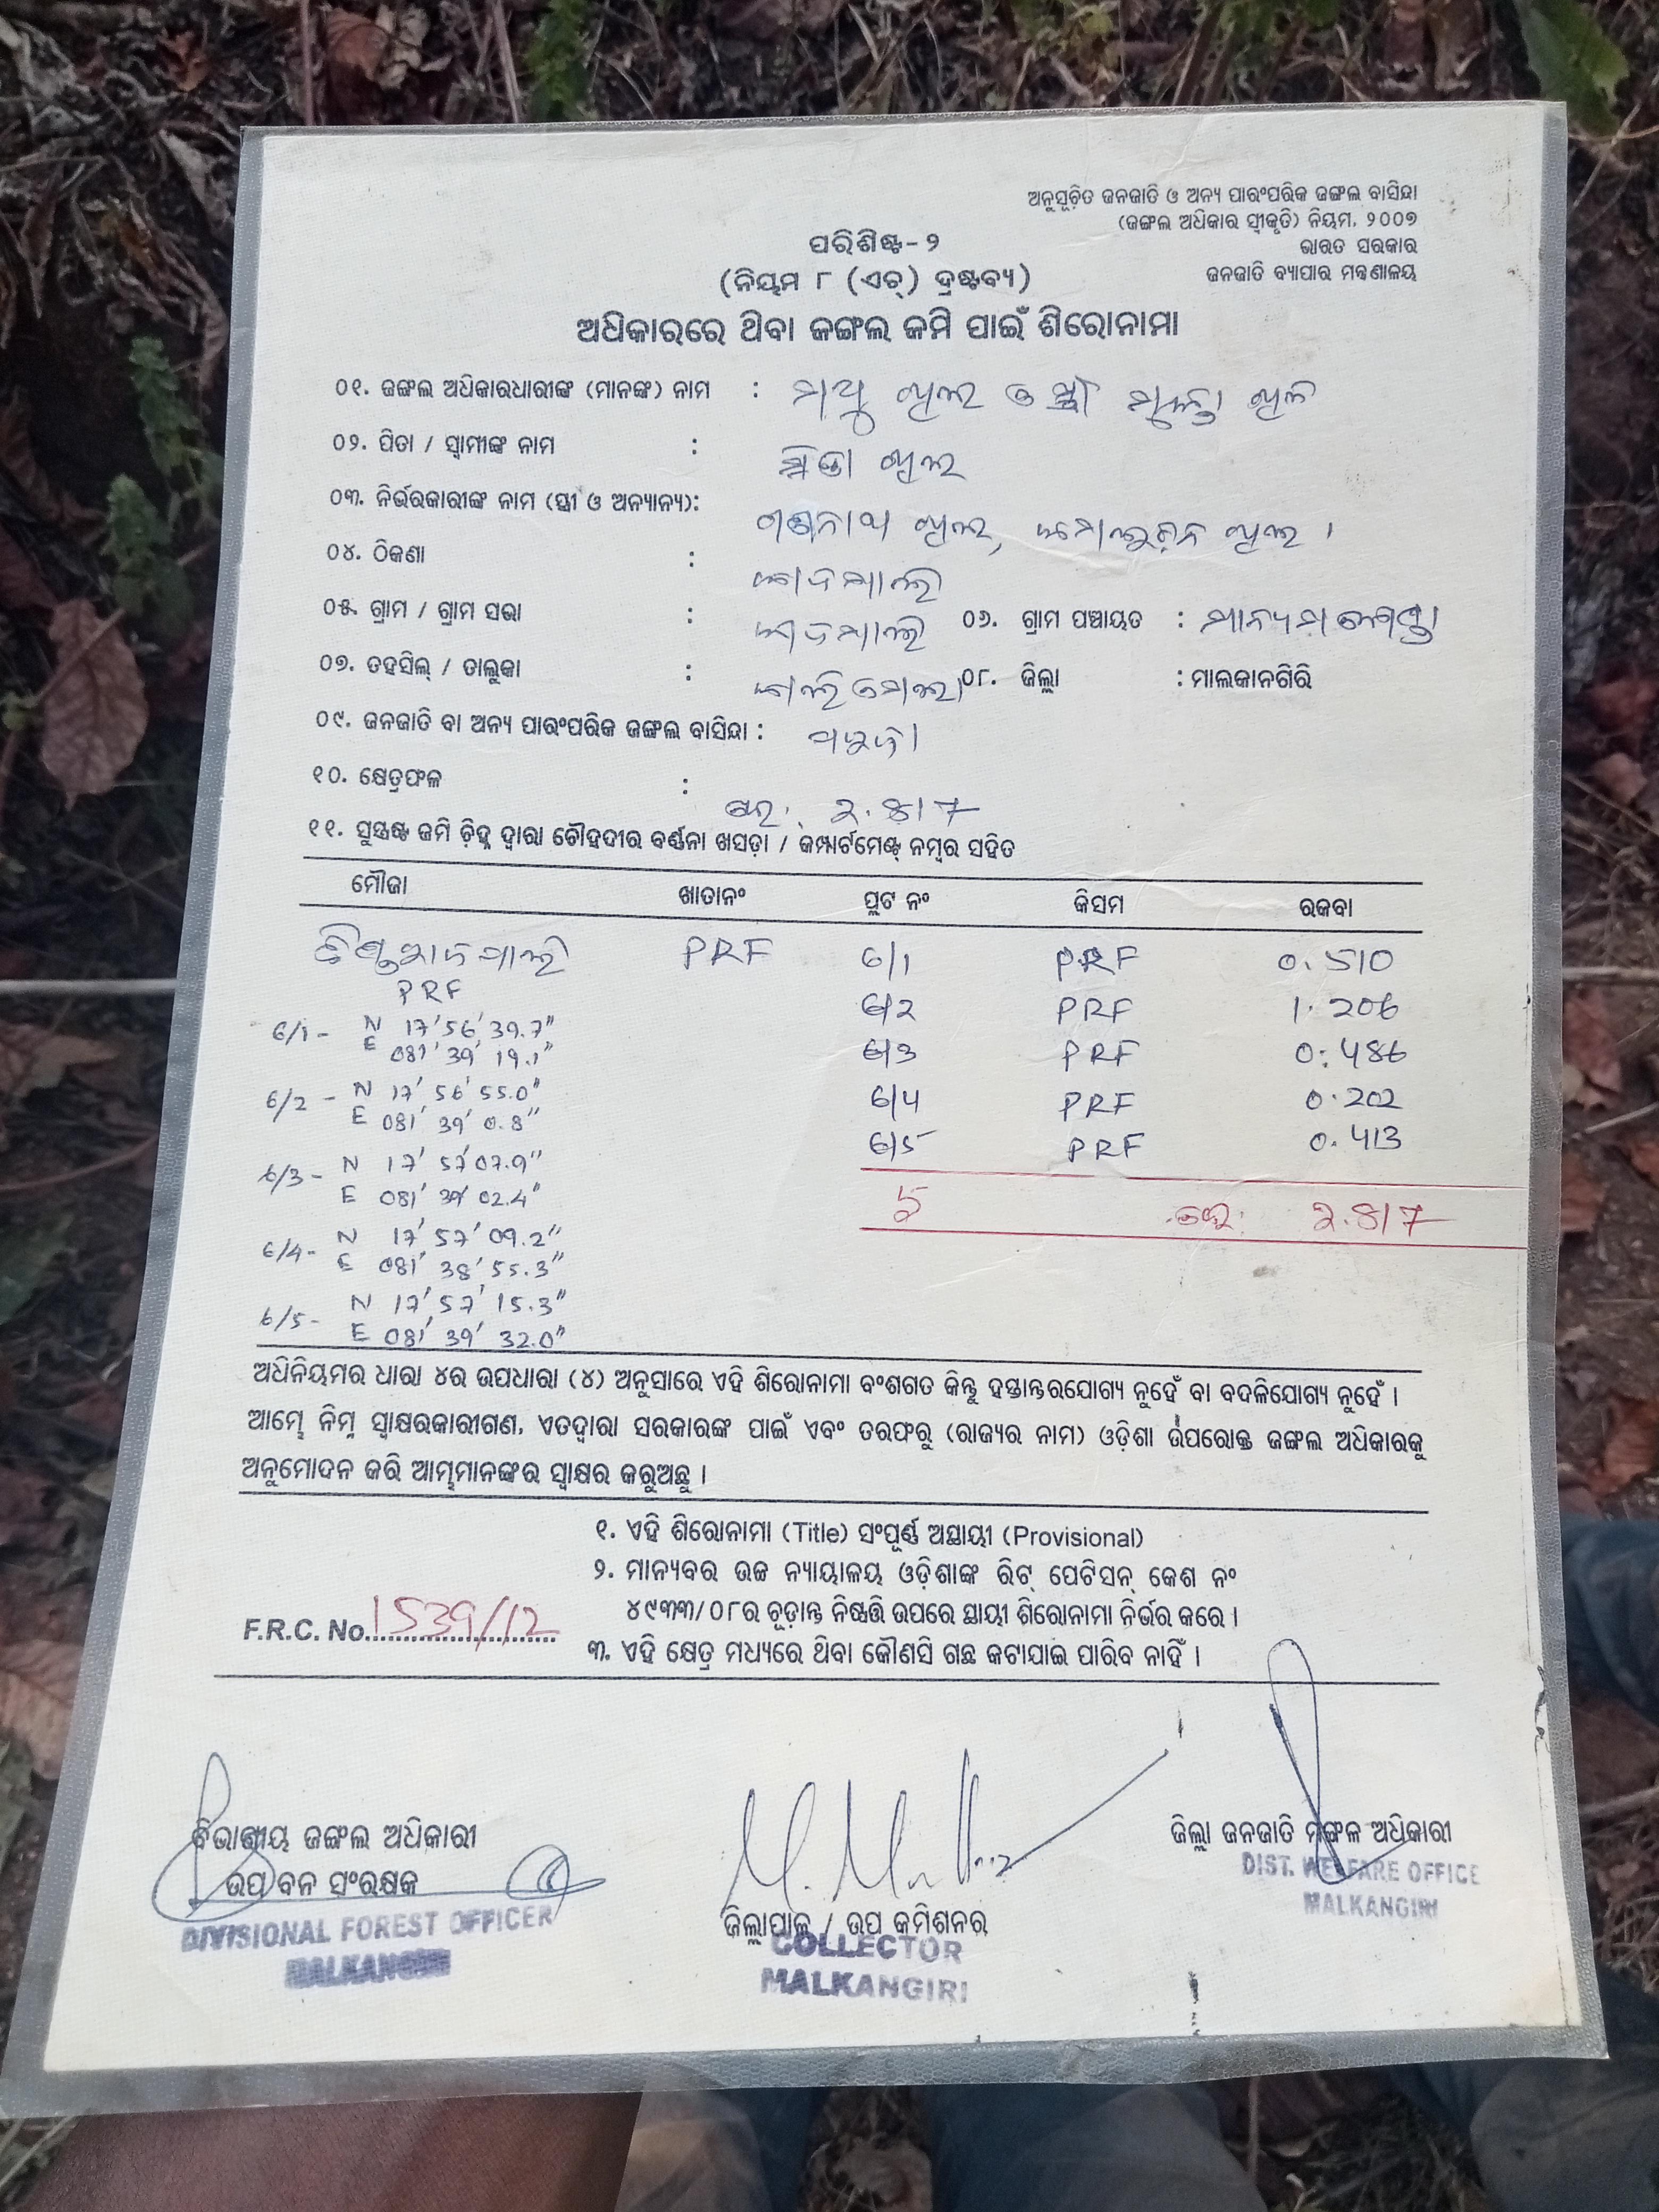 ଅନୁସୂଚିତ ଜନଜାତି ଓ ଅନ୍ୟ ପାରଂପରିକ ଜଙ୍ଗଲ ବାସିନ୍ଦା
(ଜଙ୍ଗଲ ଅଧିକାର ସ୍ୱୀକୃତି) ନିୟମ, ୨୦୦୭
ଭାରତ ସରକାର
ଜନଜାତି ବ୍ୟାପାର ମନ୍ତ୍ରଣାଳୟ
ପରିଶିଷ୍ଟ-୨
(ନିୟମ ୮ (ଏଚ୍) ଦ୍ରଷ୍ଟବ୍ୟ)
ଅଧିକାରରେ ଥିବା ଜଙ୍ଗଲ ଜମି ପାଇଁ ଶିରୋନାମା
୦୧. ଜଙ୍ଗଲ ଅଧିକାରଧାରୀଙ୍କ (ମାନଙ୍କ) ନାମ :
୦୨. ପିତା / ସ୍ୱାମୀଙ୍କ ନାମ :
୦୩. ନିର୍ଭରକାରୀଙ୍କ ନାମ (ସ୍ତ୍ରୀ ଓ ଅନ୍ୟାନ୍ୟ):
୦୪. ଠିକଣା :
୦୫. ଗ୍ରାମ / ଗ୍ରାମ ସଭା : ୦୬. ଗ୍ରାମ ପଞ୍ଚାୟତ :
୦୭. ତହସିଲ୍ / ତାଲୁକା : ୦୮. ଜିଲ୍ଲା : ମାଲକାନଗିରି
୦୯. ଜନଜାତି ବା ଅନ୍ୟ ପାରଂପରିକ ଜଙ୍ଗଲ ବାସିନ୍ଦା :
୧୦. କ୍ଷେତ୍ରଫଳ : 2.817
୧୧. ସୁସ୍ପଷ୍ଟ ଜମି ଚିହ୍ନ ଦ୍ୱାରା ଚୌହଦୀର ବର୍ଣ୍ଣନା ଖସଡ଼ା / କମ୍ପାର୍ଟମେଣ୍ଟ୍ ନମ୍ବର ସହିତ
ମୌଜା ଖାତାନଂ ପ୍ଲଟ ନଂ କିସମ ରକବା
PRF 6/1 PRF 0.510
PRF
6/2 PRF 1.206
6/1- N 17'56'39.7"
E 081'39'19.1"
6/3 PRF 0.486
6/2 - N 17'56'55.0"
E 081'39'0.8"
6/4 PRF 0.202
6/5 PRF 0.413
6/3- N 17'57'07.9"
E 081'39'02.4"
5 2.817
6/4- N 17'57'09.2"
E 081'38'55.3"
6/5- N 17'57'15.3"
E 081'39'32.0"
ଅଧିନିୟମର ଧାରା ୪ର ଉପଧାରା (୪) ଅନୁସାରେ ଏହି ଶିରୋନାମା ବଂଶଗତ କିନ୍ତୁ ହସ୍ତାନ୍ତରଯୋଗ୍ୟ ନୁହେଁ ବା ବଦଳିଯୋଗ୍ୟ ନୁହେଁ ।
ଆମ୍ଭେ ନିମ୍ନ ସ୍ୱାକ୍ଷରକାରୀଗଣ, ଏତଦ୍ୱାରା ସରକାରଙ୍କ ପାଇଁ ଏବଂ ତରଫରୁ (ରାଜ୍ୟର ନାମ) ଓଡ଼ିଶା ଉପରୋକ୍ତ ଜଙ୍ଗଲ ଅଧିକାରକୁ
ଅନୁମୋଦନ କରି ଆମ୍ଭମାନଙ୍କର ସ୍ୱାକ୍ଷର କରୁଅଛୁ ।
୧. ଏହି ଶିରୋନାମା (Title) ସଂପୂର୍ଣ୍ଣ ଅସ୍ଥାୟୀ (Provisional)
୨. ମାନ୍ୟବର ଉଚ୍ଚ ନ୍ୟାୟାଳୟ ଓଡ଼ିଶାଙ୍କ ରିଟ୍ ପେଟିସନ୍ କେଶ ନଂ
୪୯୩୩/୦୮ର ଚୂଡ଼ାନ୍ତ ନିଷ୍ପତ୍ତି ଉପରେ ସ୍ଥାୟୀ ଶିରୋନାମା ନିର୍ଭର କରେ ।
F.R.C. No. 1539/12
୩. ଏହି କ୍ଷେତ୍ର ମଧ୍ୟରେ ଥିବା କୌଣସି ଗଛ କଟାଯାଇ ପାରିବ ନାହିଁ ।
ବିଭାଗୀୟ ଜଙ୍ଗଲ ଅଧିକାରୀ
ଉପ ବନ ସଂରକ୍ଷକ
DIVISIONAL FOREST OFFICER
MALKANGIRI
ଜିଲ୍ଲାପାଳ / ଉପ କମିଶନର
COLLECTOR
MALKANGIRI
ଜିଲ୍ଲା ଜନଜାତି ମଙ୍ଗଳ ଅଧିକାରୀ
DIST. WELFARE OFFICE
MALKANGIRI